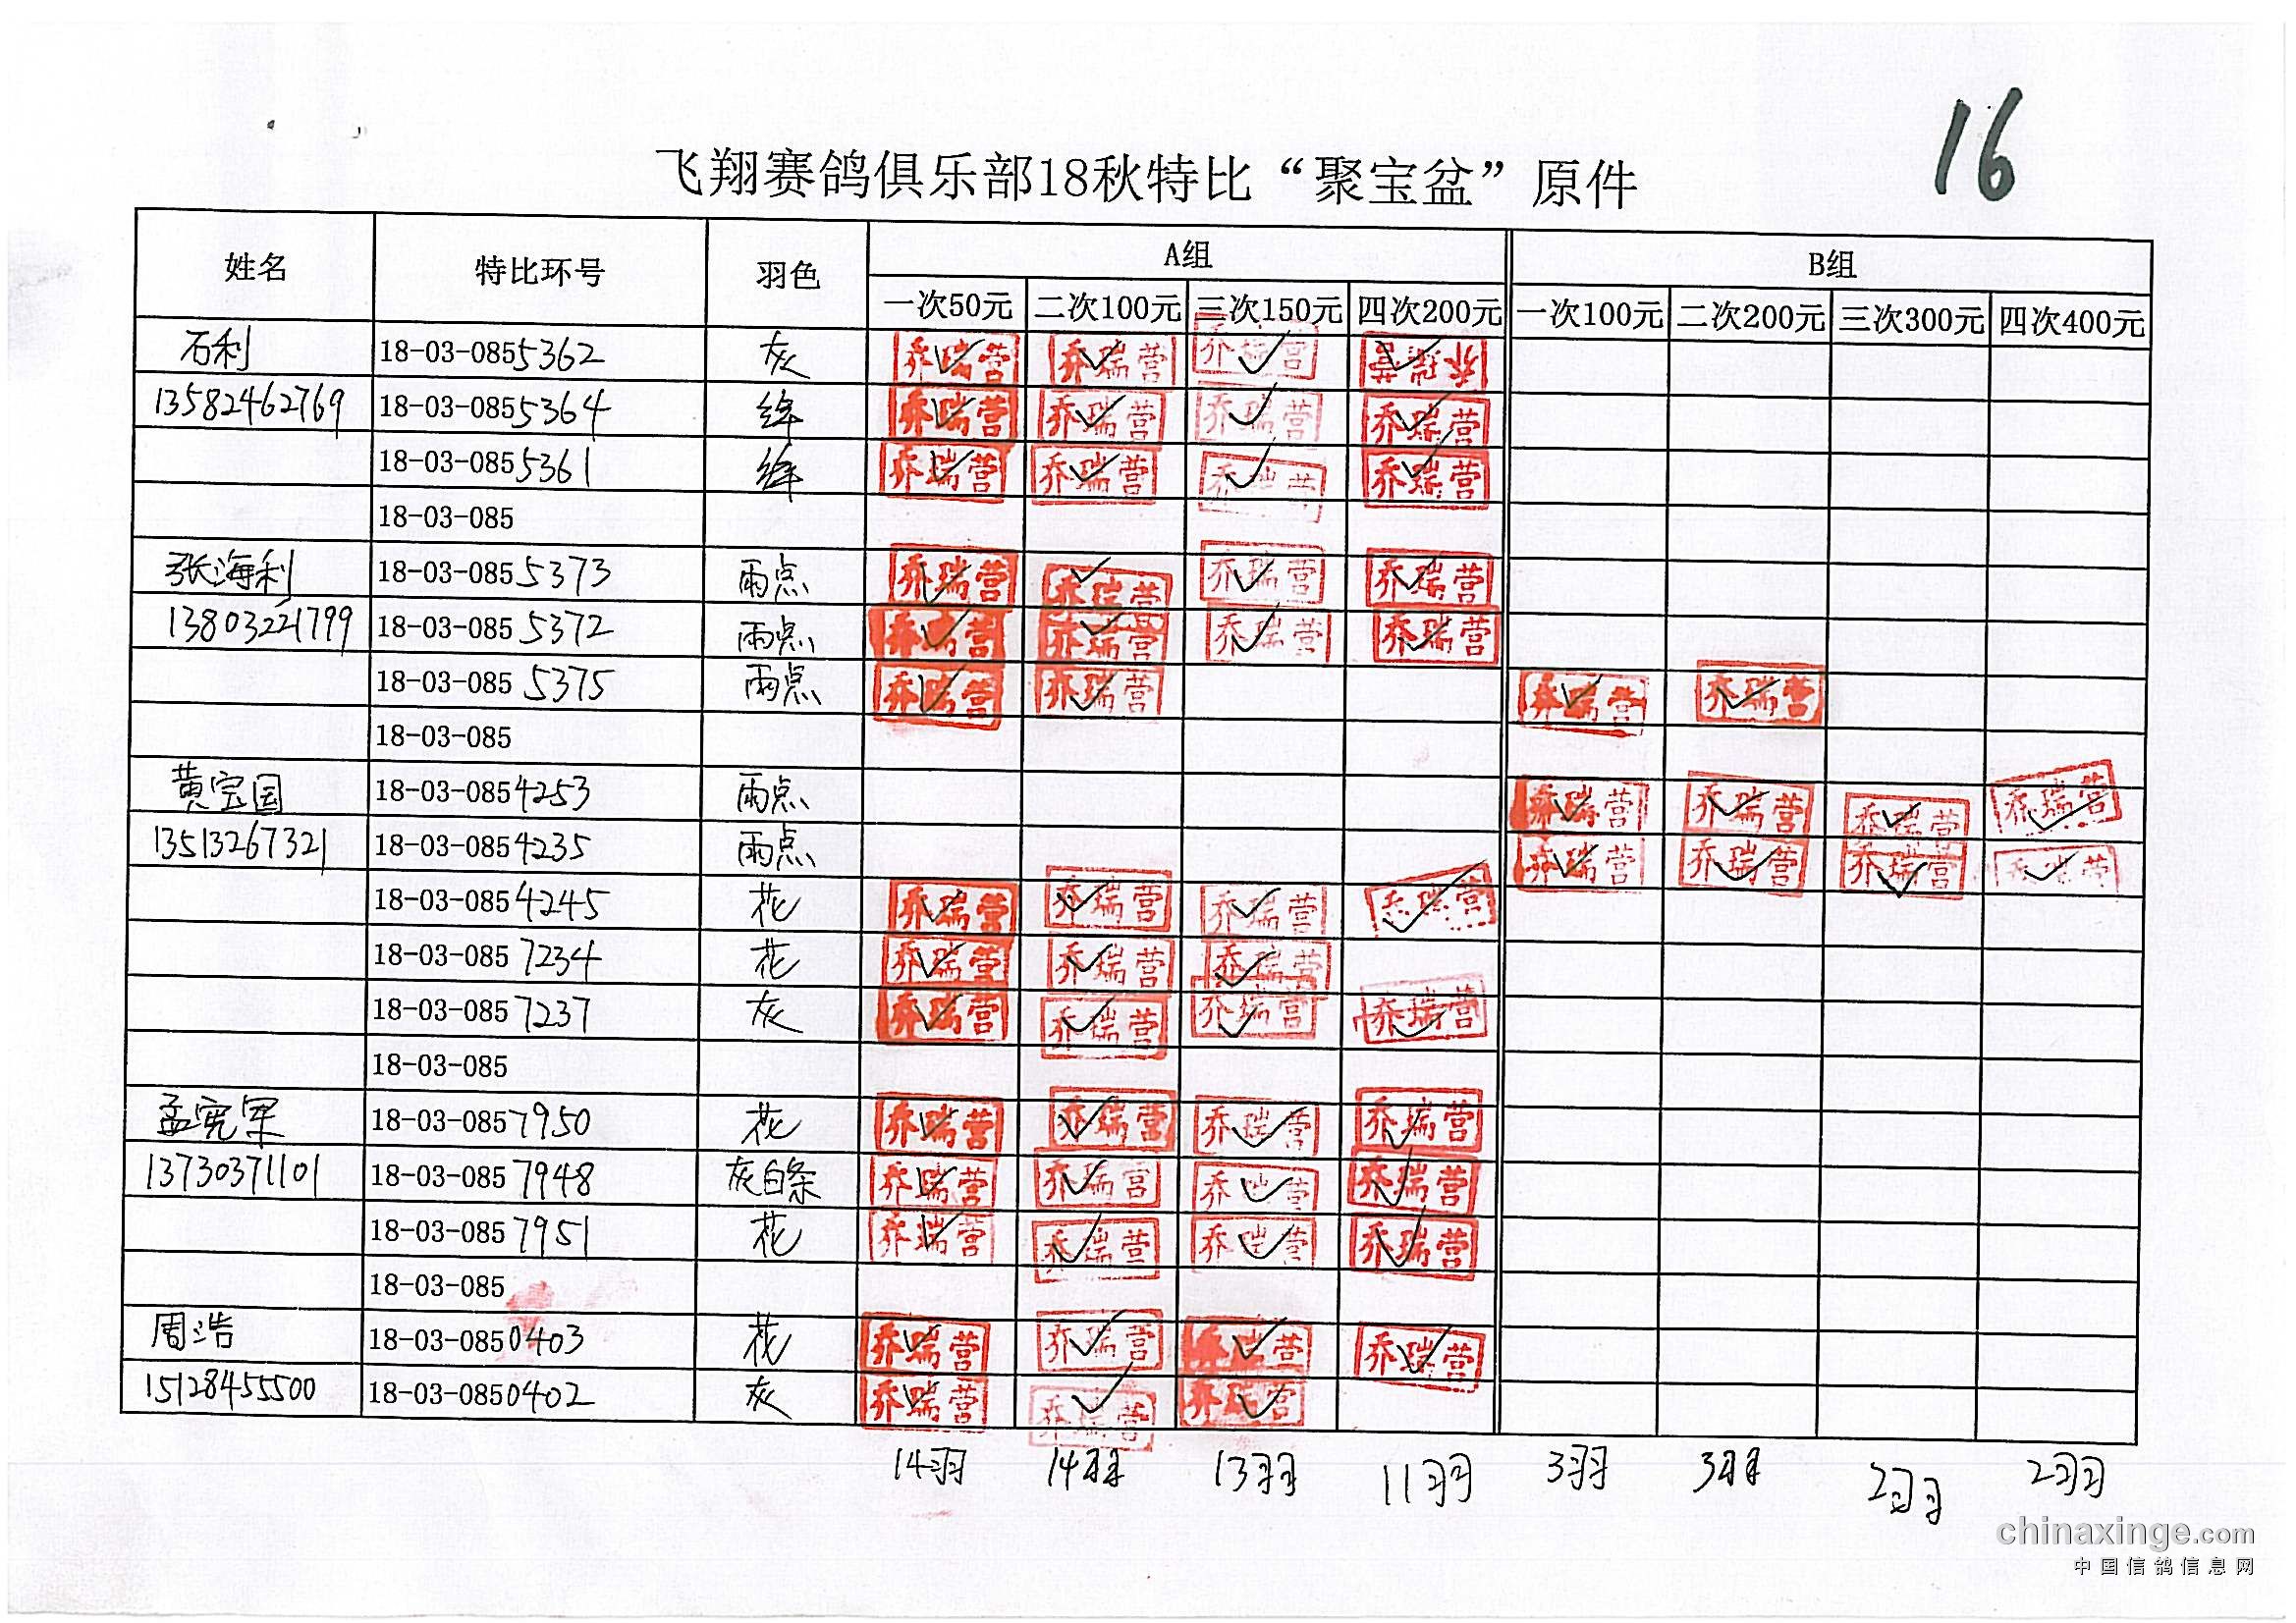 16
飞翔赛鸽俱乐部18秋特比“聚宝盆”原件
姓名 特比环号 羽色 A组 B组
一次50元 二次100元 三次150元 四次200元 一次100元 二次200元 三次300元 四次400元
石利 18-03-0855362 灰 乔瑞营 乔瑞营 乔瑞营 乔瑞营
13582462769 18-03-0855364 绛 乔瑞营 乔瑞营 乔瑞营 乔瑞营
18-03-0855361 绛 乔瑞营 乔瑞营 乔瑞营 乔瑞营
18-03-085
张海利 18-03-0855373 雨点 乔瑞营 乔瑞营 乔瑞营 乔瑞营
13803221799 18-03-0855372 雨点 乔瑞营 乔瑞营 乔瑞营 乔瑞营
18-03-0855375 雨点 乔瑞营 乔瑞营 乔瑞营 乔瑞营
18-03-085
黄宝国 18-03-0854253 雨点 乔瑞营 乔瑞营 乔瑞营 乔瑞营
13513267321 18-03-0854235 雨点 乔瑞营 乔瑞营 乔瑞营 乔瑞营
18-03-0854245 花 乔瑞营 乔瑞营 乔瑞营 乔瑞营
18-03-0857234 花 乔瑞营 乔瑞营 乔瑞营
18-03-0857237 灰 乔瑞营 乔瑞营 乔瑞营 乔瑞营
18-03-085
孟宪军 18-03-0857950 花 乔瑞营 乔瑞营 乔瑞营 乔瑞营
13730371101 18-03-0857948 灰白条 乔瑞营 乔瑞营 乔瑞营 乔瑞营
18-03-0857951 花 乔瑞营 乔瑞营 乔瑞营 乔瑞营
18-03-085
周浩 18-03-0850403 花 乔瑞营 乔瑞营 乔瑞营 乔瑞营
15128455500 18-03-0850402 灰 乔瑞营 乔瑞营 乔瑞营
14羽 14羽 13羽 11羽 3羽 3羽 2羽 2羽
chinaxinge.com
中国信鸽信息网